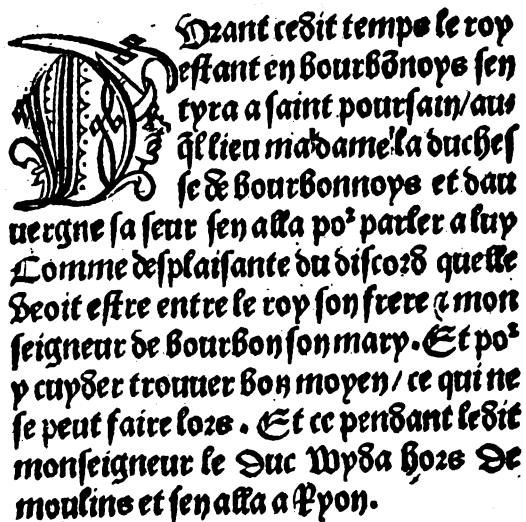 DUrant cedit temps le roy
estant en bourbõnoys sen
tyra a saint poursain/au-
q̃l lieu madame la duches
se de bourbonnoys et dau
uergne sa seur sen alla poꝛ parler a luy
Comme desplaisante du discord quelle
veoit estre entre le roy son frere ⁊ mon
seigneur de bourbon son mary. Et poꝛ
y cuyder trouuer bon moyen/ ce qui ne
se peut faire lors. Et ce pendant ledit
monseigneur le duc wyda hors de
moulins et sen alla a Ryon.